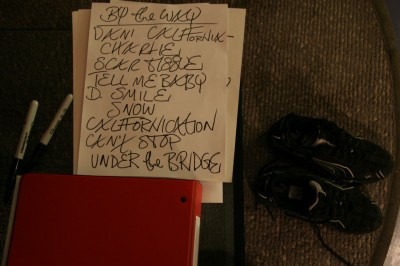 By the WAY
DANI CALIFORNIA-
CHARLIE,
SCAR TISSUE,
TELL ME BABY,
D. SMILE,
SNOW
CALIFORNICATION
CAN'T STOP
UNDER the BRIDGE,